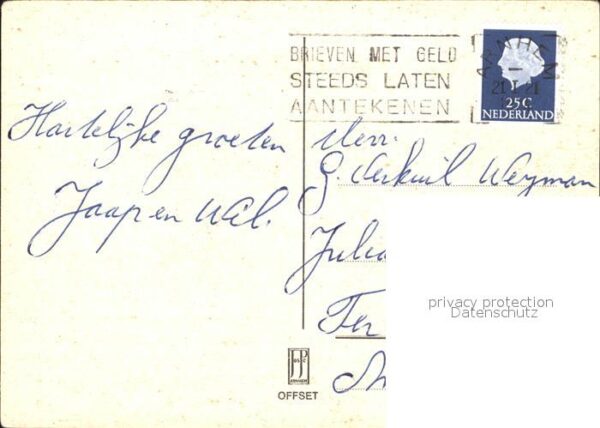 BRIEVEN MET GELD
STEEDS LATEN
AANTEKENEN
ARNHEM
25c
NEDERLAND
Hartelijke groeten
Jaap en Wil.
Herr.
G. Verkuil Weyman
Julia
Ter
privacy protection
Datenschutz
OFFSET